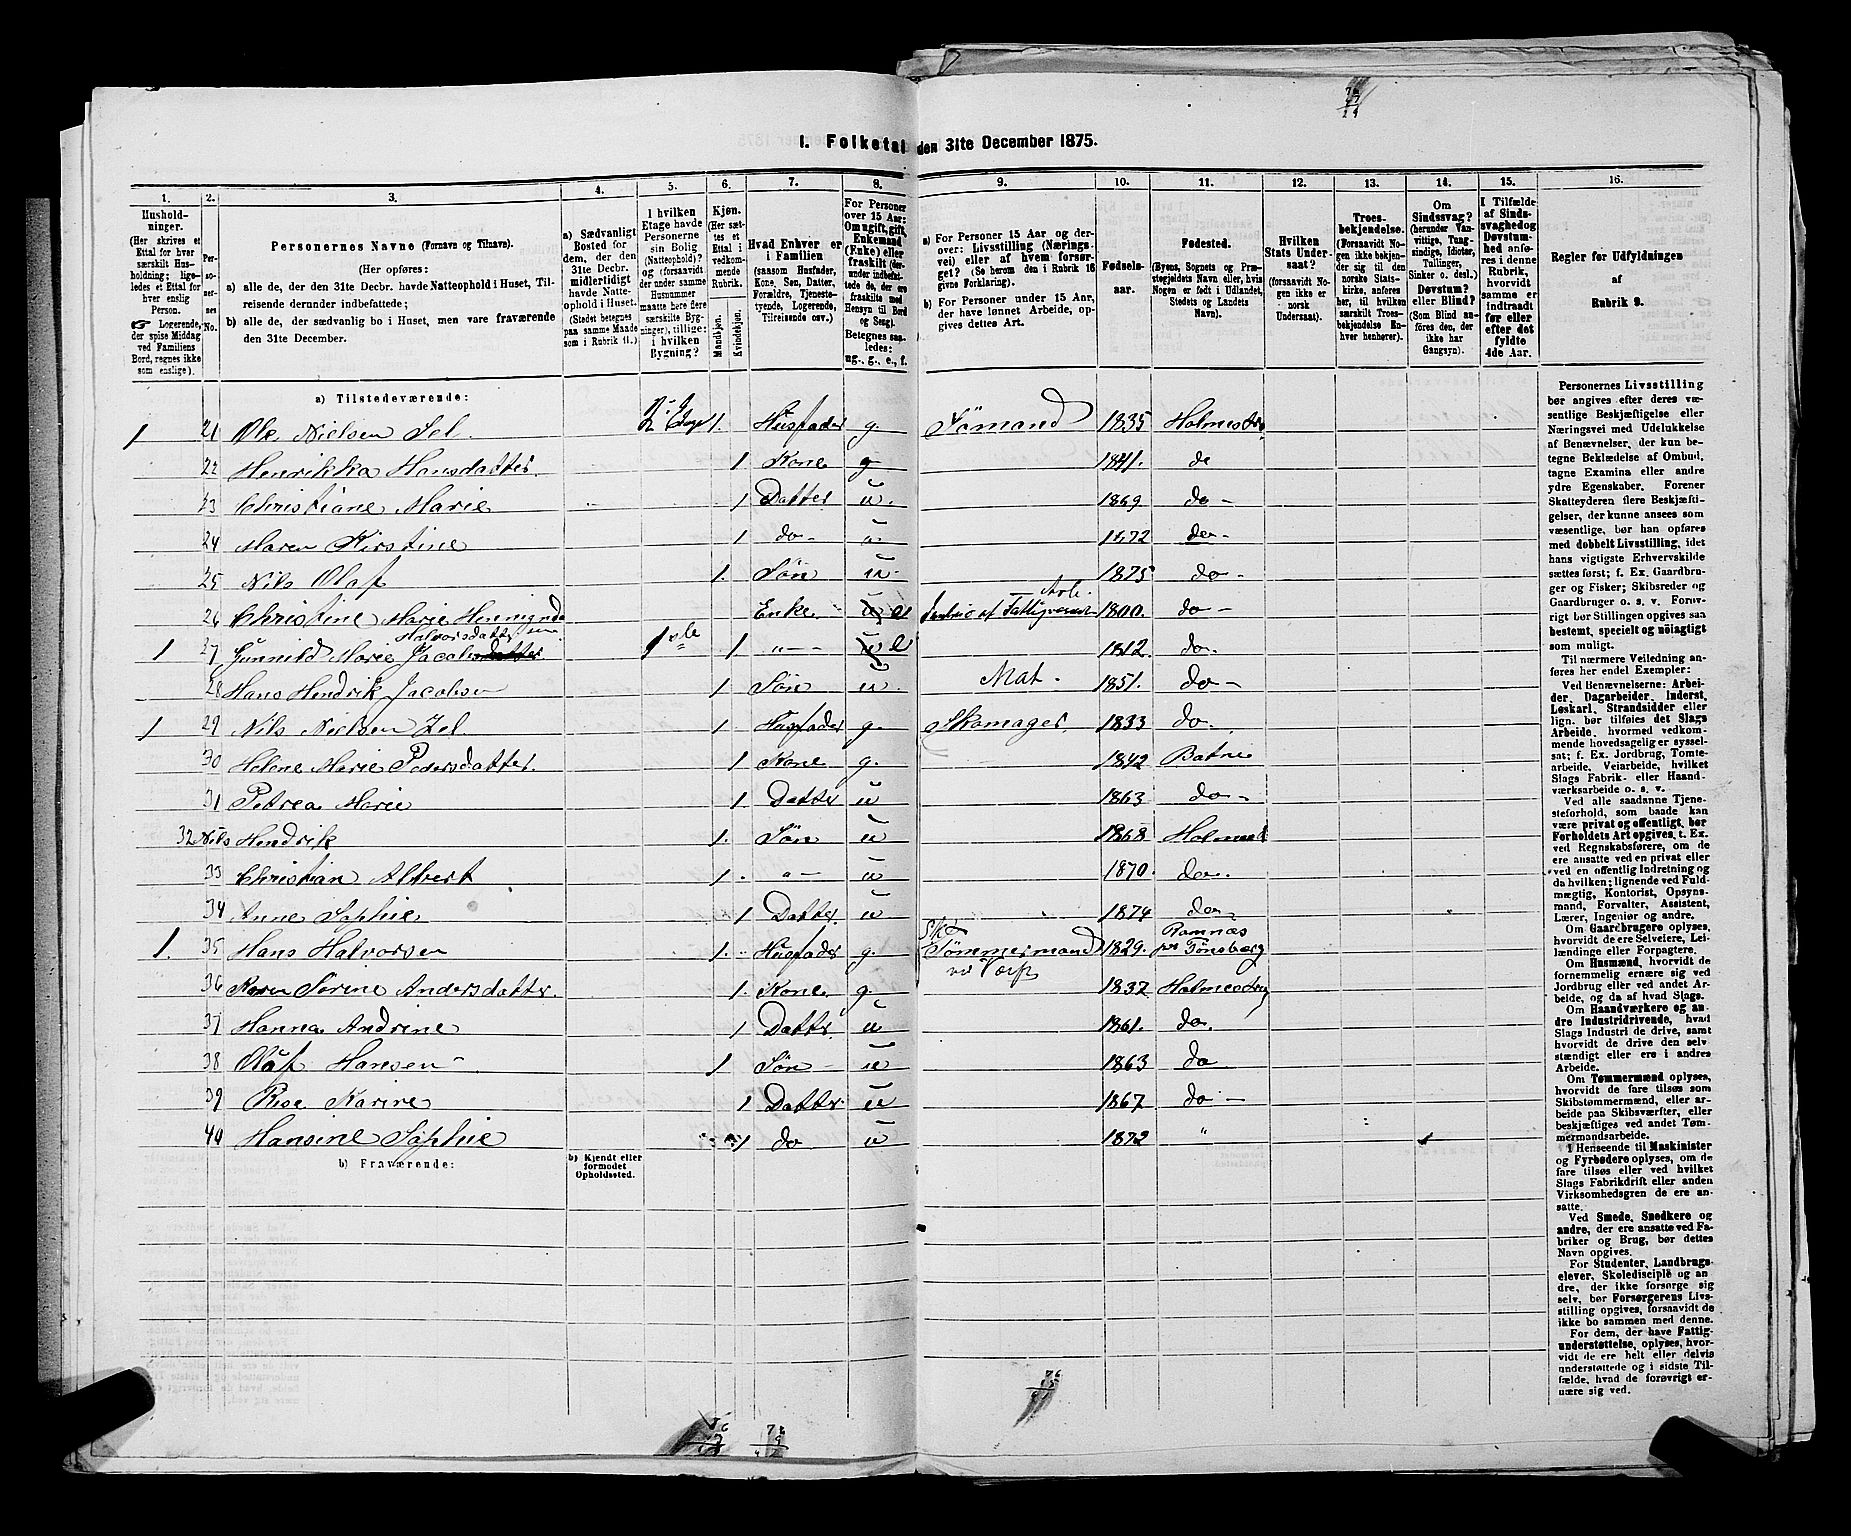 I. Folketal den 31te December 1875.
1. 2. 3. 4. 5. 6. 7. 8. 9. 10. 11. 12. 13. 14. 15. 16.
Husholdninger. (Her skrives et Ettal for hver særskilt Husholdning; ligeledes et Ettal for hver enslig Person. ☞ Logerende, der spise Middag ved Familiens Bord, regnes ikke som enslige).
Personernes No.
Personernes Navne (Fornavn og Tilnavn).
(Her opføres:
a) alle de, der den 31te Decbr. havde Natteophold i Huset, Tilreisende derunder indbefattede;
b) alle de, der sædvanlig bo i Huset, men vare fraværende den 31te December.
a) Sædvanligt Bosted for dem, der den 31te Decbr. midlertidigt havde Natteophold i Huset. (Stedet betegnes paa samme Maade som i Rubrik 11.)
I hvilken Etage havde Personerne sin Bolig (Natteophold)? og (forsaavidt der under samme Husnummer maatte være flere særskilte Bygninger), tillige: i hvilken Bygning?
Kjøn. (Her sættes et Ettal i vedkommende Rubrik.
Mandkjøn. Kvindekjøn.
Hvad Enhver er i Familien (saasom Husfader, Kone, Søn, Datter, Forældre, Tjenestetyende, Logerende, Tilreisende osv.)
For Personer over 15 Aar: Om ugift, gift, Enkemand (Enke) eller fraskilt (derunder indbefattede de, der ere fraskilte med Hensyn til Bord og Seng). Betegnes saaledes: ug., g., e., f.
a) For Personer 15 Aar og derover: Livsstilling (Næringsvei) eller af hvem forsørget? (Se herom den i Rubrik 16 givne Forklaring).
b) For Personer under 15 Aar, der have lønnet Arbeide, opgives dettes Art.
Fødselsaar.
Fødested. (Byens, Sognets og Præstegjeldets Navn eller, hvis Nogen er født i Udlandet, Stedets og Landets Navn).
Hvilken Stats Undersaat? (forsaavidt Nogen ikke er norsk Undersaat).
Troesbekjendelse. (Forsaavidt Nogen ikke bekjender sig til den norske Statskirke, anføres her, til hvilken særskilt Troesbekjendelse Enhver henhører).
Om Sindssvag? (herunder Vanvittige, Tungsindige, Idioter, Tullinger, Sinker o. desl.) Døvstum? eller Blind? (Som Blind anføres den, der ikke har Gangsyn).
I Tilfælde af Sindssvaghed og Døvstumhed anføres i denne Rubrik, hvorvidt samme er indtraadt før eller efter det fyldte 4de Aar.
Regler for Udfyldningen af Rubrik 9.
a) Tilstedeværende:
1 21 Ole Nielsen Sel. 2. Etage 1. Husfader g. Sömand 1835 Holmestr.
22 Henrikka Hansdatter. 1 Kone g 1841. do
23 Christiane Marie 1 Datter u. 1869 do-
24 Maren Kirstine 1 do- u 1872 do-
25 Nils Olaf 1. Søn u 1875 do-
26 Christine Marie Enke e Fattigvæsenet 1800. do-
Halvorsdatter
1 27 Gunnild Marie 1ste 1 "-- e 1812. do.
28 Hans Hendrik Jacobsen 1 Søn u. Mat. 1851. do-
1 29 Nils Nielsen Sel. 1 Husfader g. Skomager 1833 do.
30 Helene Marie Pedersdatter. 1 Kone g. 1842 Botne
31 Petrea Marie 1 Datter u 1863 do-
32 Nils Hendrik 1. Søn u 1868 Holmest
33 Christian Albert 1. "- u 1870. do.
34 Anne Sophie 1 Datter u 1874 do-
1. 35 Hans Halvorsen 1. Husfader g. Tömmermand 1829. Ramnæs Tönsberg
36 Karen Sörine Andersdatter. 1. Kone g. 1837 Holmestr
37 Hanna Andrine 1 Datter u 1861. do.
38 Olaf Hansen- 1 Søn- u 1863 do
39 Karine 1 Datter u 1867 do-
40 Hansine Sophie 1 do u 1872 "
b) Fraværende:
b) Kjendt eller formodet Opholdssted.
Personernes Livsstilling bør angives efter deres væsentlige Beskjæftigelse eller Næringsvei med Udelukkelse af Benævnelser, der kun betegne Beklædelse af Ombud, tagne Examina eller andre ydre Egenskaber. Forener Skatteyderen flere Beskjæftigelser, der kunne ansees som væsentlige, bør han opføres med dobbelt Livsstilling, idet hans vigtigste Erhvervskilde sættes først; f. Ex. Gaardbruger og Fisker; Skibsreder og Gaardbruger o. s. v. Forøvrigt bør Stillingen opgives saa bestemt, specielt og nøiagtigt som muligt.
Til nærmere Veiledning anføres her endel Exempler:
Ved Benævnelserne: Arbeider, Dagarbeider, Inderst, Løskarl, Strandsidder eller lign. bør tilføies det Slags Arbeide, hvormed vedkommende hovedsagelig er sysselsat; f. Ex. Jordbrug, Tomtearbeide, Veiarbeide, hvilket Slags Fabrik- eller Haandværksarbeide o. s. v.
Ved alle saadanne Tjenesteforhold, som baade kan være privat og offentligt, bør Forholdets Art opgives, t. Ex. ved Regnskabsførere, om de ere ansatte ved en privat eller ved en offentlig Indretning og da hvilken; lignende ved Fuldmægtig, Kontorist, Opsynsmand, Forvalter, Assistent, Lærer, Ingeniør og andre.
Om Gaardbrugere oplyses, hvorvidt de ere Selveiere, Leilændinge eller Forpagtere.
Om Husmænd, hvorvidt de fornemmelig ernære sig ved Jordbrug eller ved andet Arbeide, og da af hvad Slags.
Om Haandværkere og andre Industridrivende, hvad Slags Industri de drive, samt hvorvidt de drive den selvstændigt eller ere i andres Arbeide.
Om Tømmermænd oplyses, hvorvidt de fare tilsøs som Skibstømmermænd, eller arbeide paa Skibsværfter, eller beskjæftiges ved andet Tømmermandsarbeide.
I Henseende til Maskinister og Fyrbødere oplyses, om de fare tilsøs eller ved hvilket Slags Fabrikdrift eller anden Virksomhed de ere ansatte.
Ved Smede, Snedkere og andre, der ere ansatte ved Fabriker og Brug, bør dettes Navn opgives.
For Studenter, Landbrugselever, Skoledisciple og andre, der ikke forsørge sig selv, bør Forsørgerens Livsstilling opgives, forsaavidt de ikke bo sammen med denne.
For dem, der have Fattigunderstøttelse, oplyses, hvorvidt de ere helt eller delvis understøttede og i sidste Tilfælde, hvad de forøvrigt ernære sig ved.